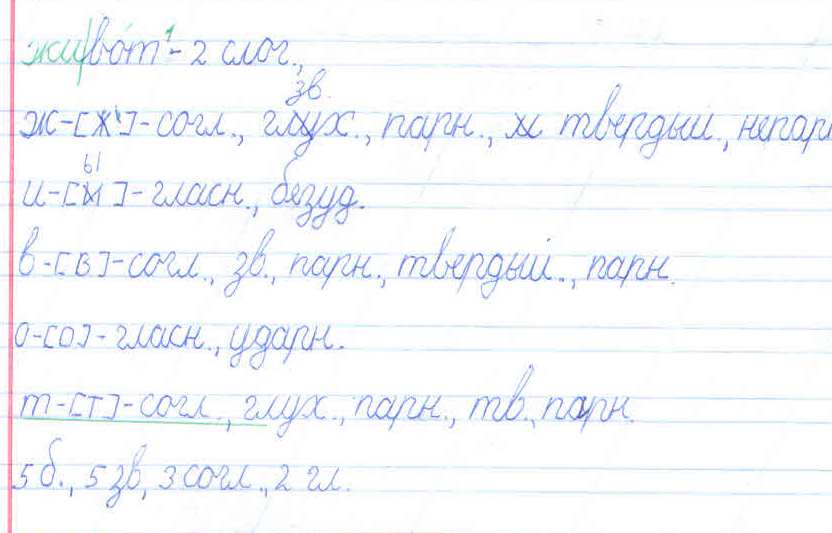 жи|во́т¹ - 2 слог.,
зв.
ж-[ж']-согл., глух., парн., м твердый., непарн
ы
и-[и]-гласн., безуд.
в-[в]-согл., зв., парн., твердый., парн.
о-[о]-гласн., ударн.
т-[т]-согл., глух., парн., тв., парн.
5 б., 5 зв, 3 согл., 2 гл.